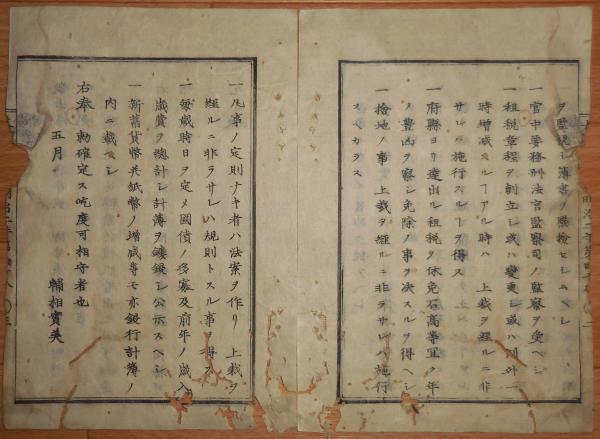 ヲ監視シ簿書ヲ照檢セシムヘシ
一官中等務刑法官監察司ノ監察ヲ受ヘシ
一租税章程ヲ創立シ或ハ變更シ或ハ例外一
時增減スルヿアル時ハ　上裁ヲ經ルニ非
サレハ施行スルヿヲ得ス
一府縣ヨリ達出ル租税ヲ休免石高等宜ク年
ノ豊凶ヲ察シ免除ノ事ヲ決スルヲ得ヘシ
一檢地ノ事上裁ヲ經ルニ非ラサレハ施行
スヘカラス
一凡事ノ定則ナキ者ハ法案ヲ作リ　上裁ヲ
經ルニ非ラサレハ規則トスル事ヲ得ス
一每歲時日ヲ定メ國債ノ多寡及前年ノ歲入
歲費ヲ總計シ計簿ヲ鏤鋟シ公示スヘシ
一新舊貨幣共紙幣ノ增減等モ亦銀行計簿ノ
內ニ載スヘシ
右奉　勅確定ス吃度可相守者也
五月
輔相實美